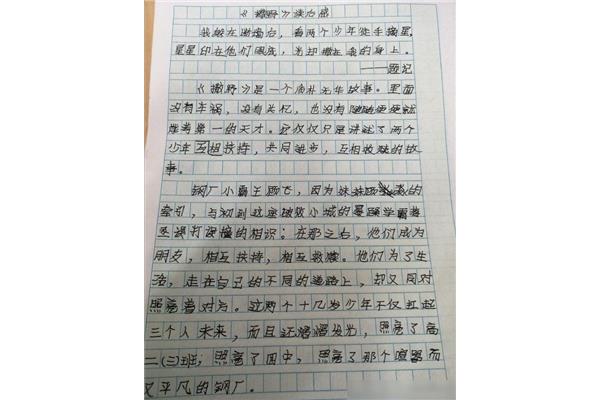 《撒野》读后感
我躲在断墙后，看两个少年徒手摘星，
星星印在他们眼底，光却撒在我的身上。
——题记
《撒野》是一个质朴无华故事。里面
没有车祸，没有失忆，也没有随随便便就
能考第一的天才。它仅仅只是讲述了两个
少年互相扶持，共同进步，互相救赎的故
事。
钢厂小霸王顾飞，因为妹妹顾淼的
牵引，与初到这座破败小城的蒋丞学霸
跌跌打误撞的相识；在那之后，他们成为
朋友，相互扶持，相互救赎。他们为了生
活，走在自己的不同的道路上，却又同时
照亮着对方。这两个十几岁少年不仅扛起
三个人未来，而且还熠熠发光，照亮了高
二（三）班，照亮了四中，照亮了那个喧嚣而
又平凡的钢厂。